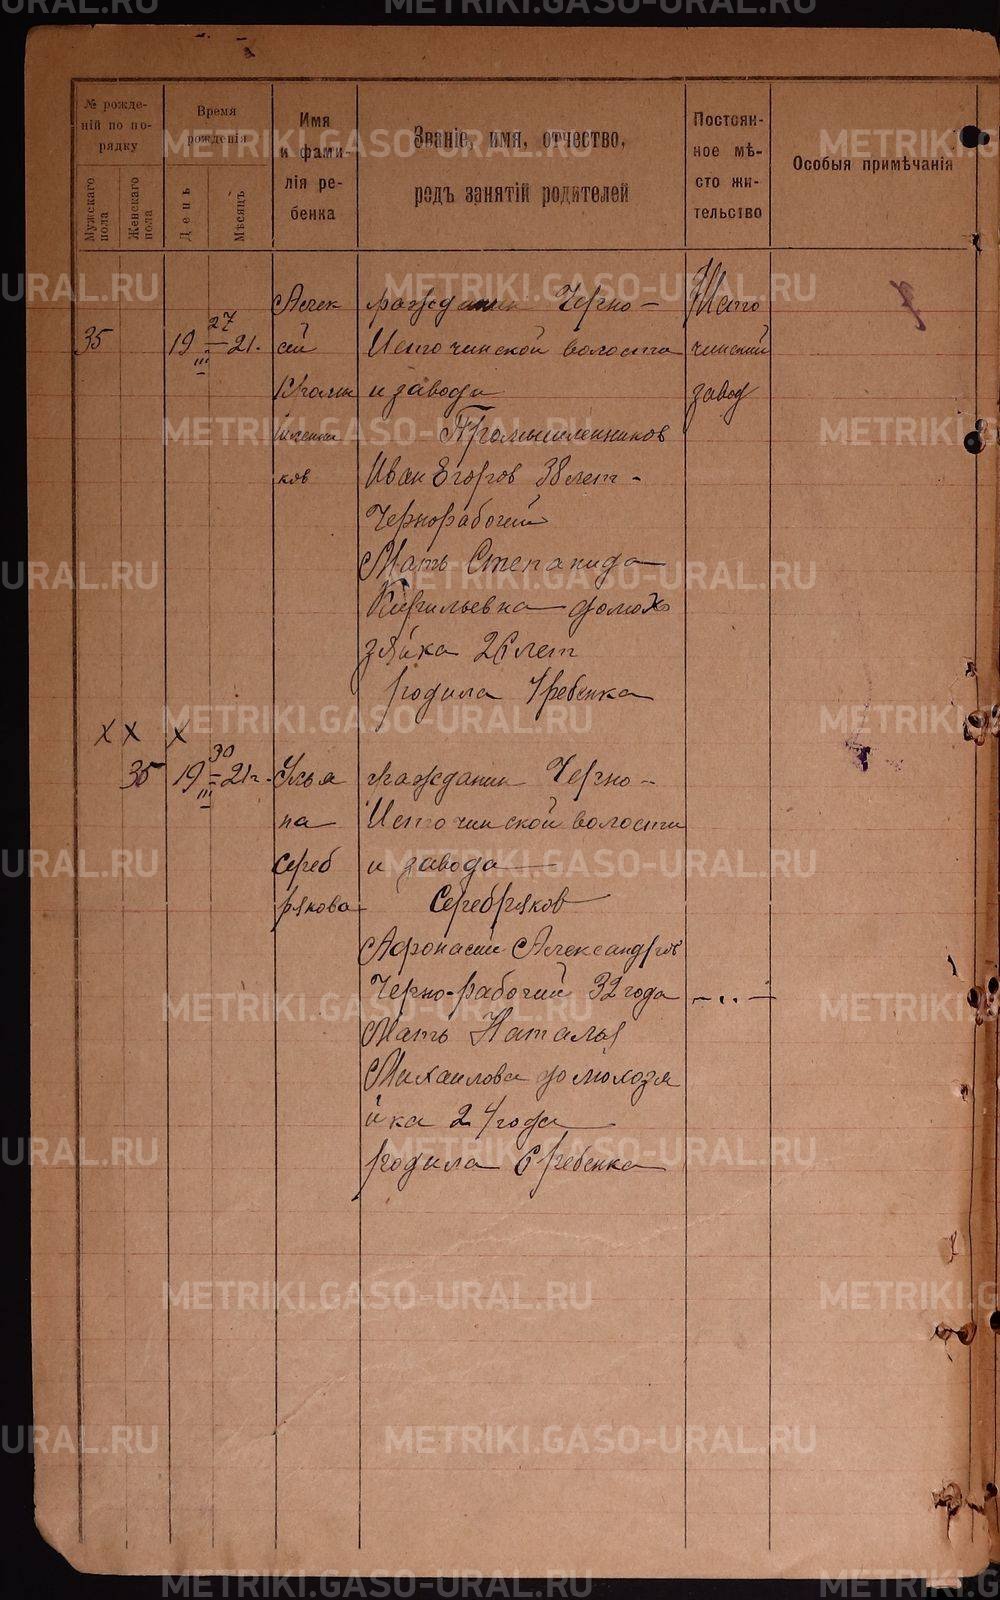 № рожде-
ній по по-
рядку
Время
рожденія
Имя
и фами-
лія ре-
бенка
Званіе, имя, отчество,
родъ занятій родителей
Постоян-
ное мѣ-
сто жи-
тельство
Особыя примѣчанія
Мужскаго
пола
Женскаго
пола
День
Мѣсяцъ
35
19 27/III 21.
Алек
сей
Промы
шленни
ков
гражданин Черно-
Источинской волости
и завода
Промышленников
Иван Егоров 38 лет-
Чернорабочий
Мать Степанида
Кирильевна домохо
зяйка 26 лет
родила 4 ребенка
Исто
чинский
завод
X X X
35
19 30/III 21г.
Улья
на
Сереб
рякова
гражданин Черно-
Источинской волости
и завода
Серебряков
Афонасий Александров
Черно-рабочий 32 года
Мать Наталья
Михаилова домохозя
йка 24 года
родила 6 ребенка
-..-
METRIKI.GASO-URAL.RU